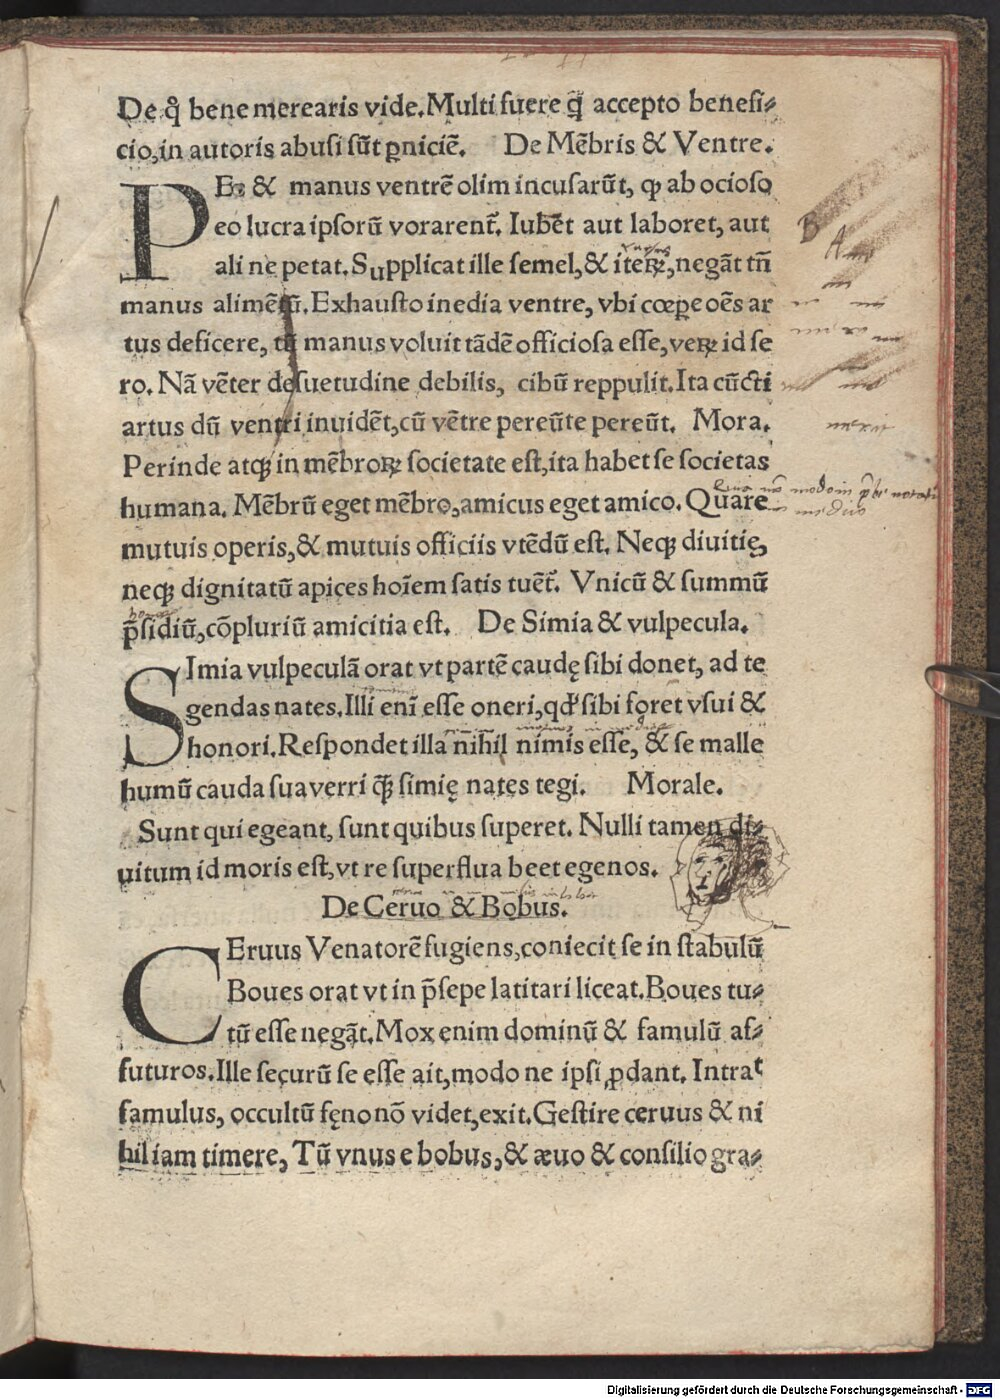 De qͦ bene merearis vide. Multi fuere q̃ accepto benefi⸗
cio, in autoris abusi sũt ꝑniciẽ. De Mẽbris & Ventre.
PEs & manus ventrẽ olim incusarũt, ꝙ ab ocioso
eo lucra ipsorũ vorarent᷑. Iubẽt aut laboret, aut
ali ne petat. Supplicat ille semel, & iteꝝ, negãt tñ
manus alimẽtũ. Exhausto inedia ventre, vbi cœꝑe oẽs ar
tus deficere, tũ manus voluit tãdẽ officiosa esse, veꝝ id se
ro. Nã vẽter desuetudine debilis, cibũ reppulit. Ita cũcti
artus dũ ventri inuidẽt, cũ vẽtre pereũte pereũt. Mora.
Perinde atqꝫ in mẽbroꝝ societate est, ita habet se societas
humana. Mẽbrũ eget mẽbro, amicus eget amico. Quare
mutuis operis, & mutuis officiis vtẽdũ est. Neqꝫ diuitię,
neqꝫ dignitatũ apices hoĩem satis tuẽt᷑. Vnicũ & summũ
p̃sidiũ, cõpluriũ amicitia est. De Simia & vulpecula.
SImia vulpeculã orat vt partẽ caudę sibi donet, ad te
gendas nates. Illi enĩ esse oneri, qđ sibi foret vsui &
honori. Respondet illa nihil nimis esse, & se malle
humũ cauda sua verri q̃ꝫ simię nates tegi. Morale.
Sunt qui egeant, sunt quibus superet. Nulli tamen di⸗
uitum id moris est, vt re superflua beet egenos.
De Ceruo & Bobus.
CEruus Venatorẽ fugiens, coniecit se in stabulũ
Boues orat vt in p̃sepe latitari liceat. Boues tu⸗
tũ esse negãt. Mox enim dominũ & famulũ af⸗
futuros. Ille securũ se esse ait, modo ne ipsi ꝓdant. Intrat
famulus, occultũ fęno nõ videt, exit. Gestire ceruus & ni
hil iam timere, Tũ vnus e bobus, & æuo & consilio gra⸗
B
Digitalisierung gefördert durch die Deutsche Forschungsgemeinschaft - DFG